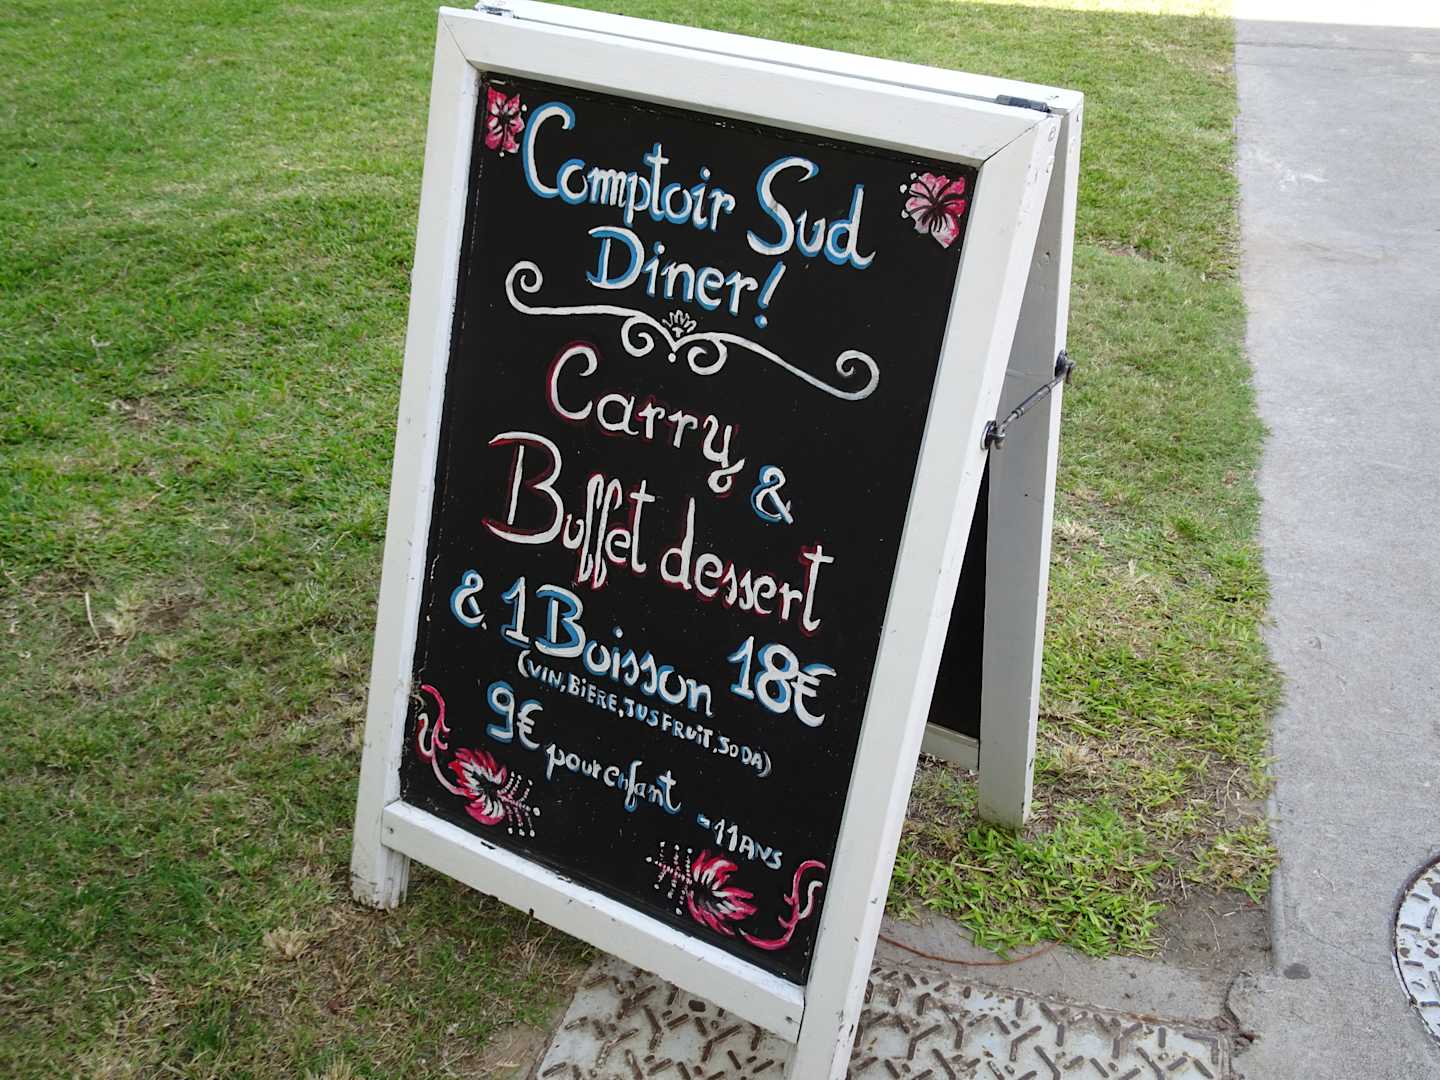 Comptoir Sud
Diner!
Carry &
Buffet dessert
& 1 Boisson 18€
(VIN, BIERE, JUS FRUIT, SODA)
9€ pour enfant -11 ANS